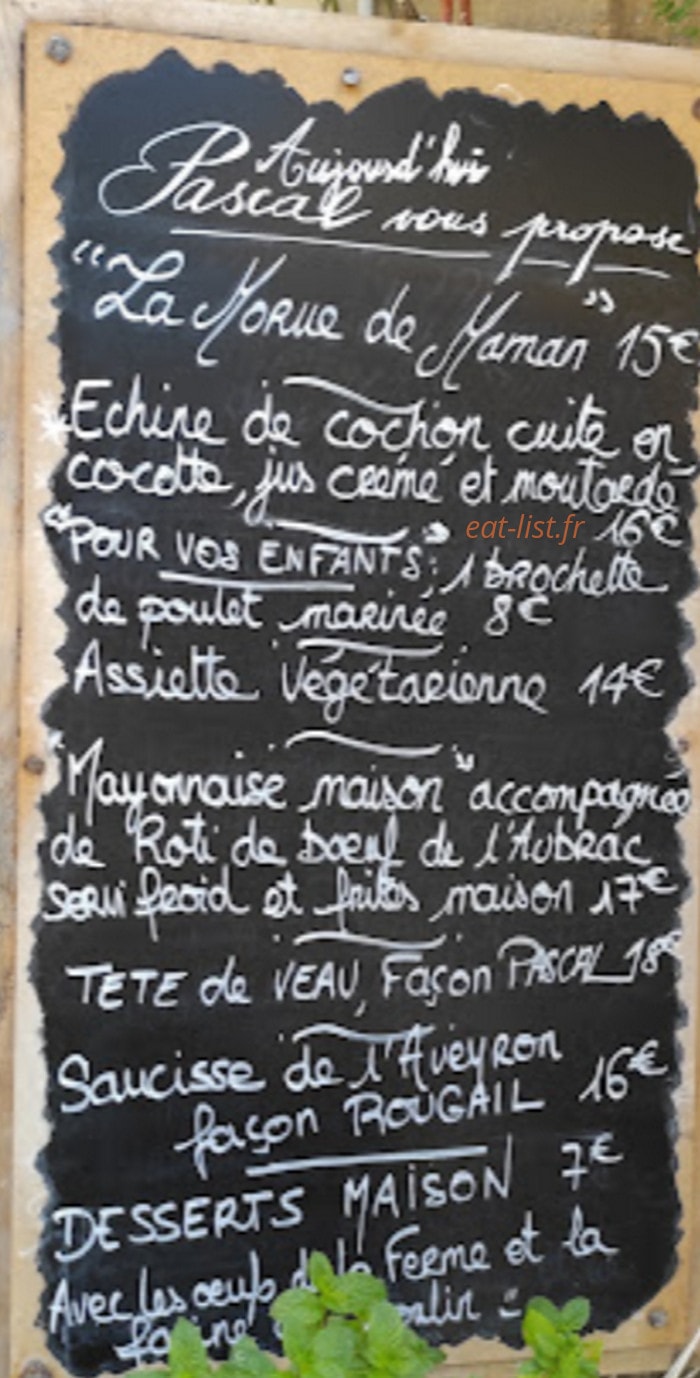 Aujourd'hui
Pascal vous propose
"La Morue de Maman" 15€
Echine de cochon cuite en
cocotte, jus crémé et moutarde
eat-list.fr 16€
"POUR VOS ENFANTS": 1 brochette
de poulet marinée 8€
Assiette Végétarienne 14€
"Mayonnaise maison" accompagnée
de Roti de boeuf de l'Aubrac
servi froid et frites maison 17€
TETE de VEAU, Façon PASCAL 18€
Saucisse de l'Aveyron
façon ROUGAIL 16€
DESSERTS MAISON 7€
Avec les oeufs de la Ferme et la
farine